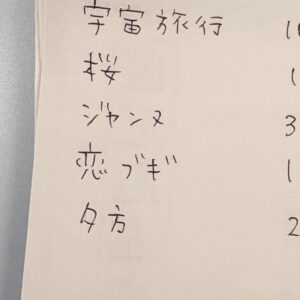 宇宙旅行 1
桜 1
ジャンヌ 3
恋ブギ 1
夕方 2